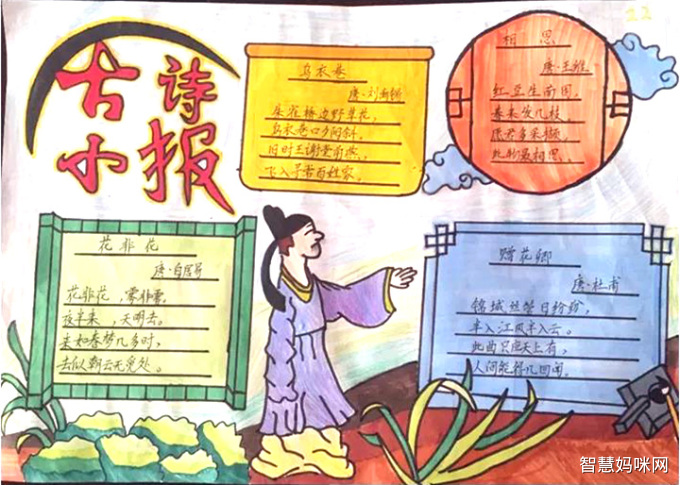 古诗
小报
乌衣巷
唐·刘禹锡
朱雀桥边野草花，
乌衣巷口夕阳斜，
旧时王谢堂前燕，
飞入寻常百姓家。
22
相思
唐·王维
红豆生南国，
春来发几枝，
愿君多采撷，
此物最相思。
花非花
唐·白居易
花非花，雾非雾，
夜半来，天明去。
来如春梦几多时，
去似朝云无觅处。
赠花卿
唐·杜甫
锦城丝管日纷纷，
半入江风半入云。
此曲只应天上有，
人间能得几回闻。
智慧妈咪网